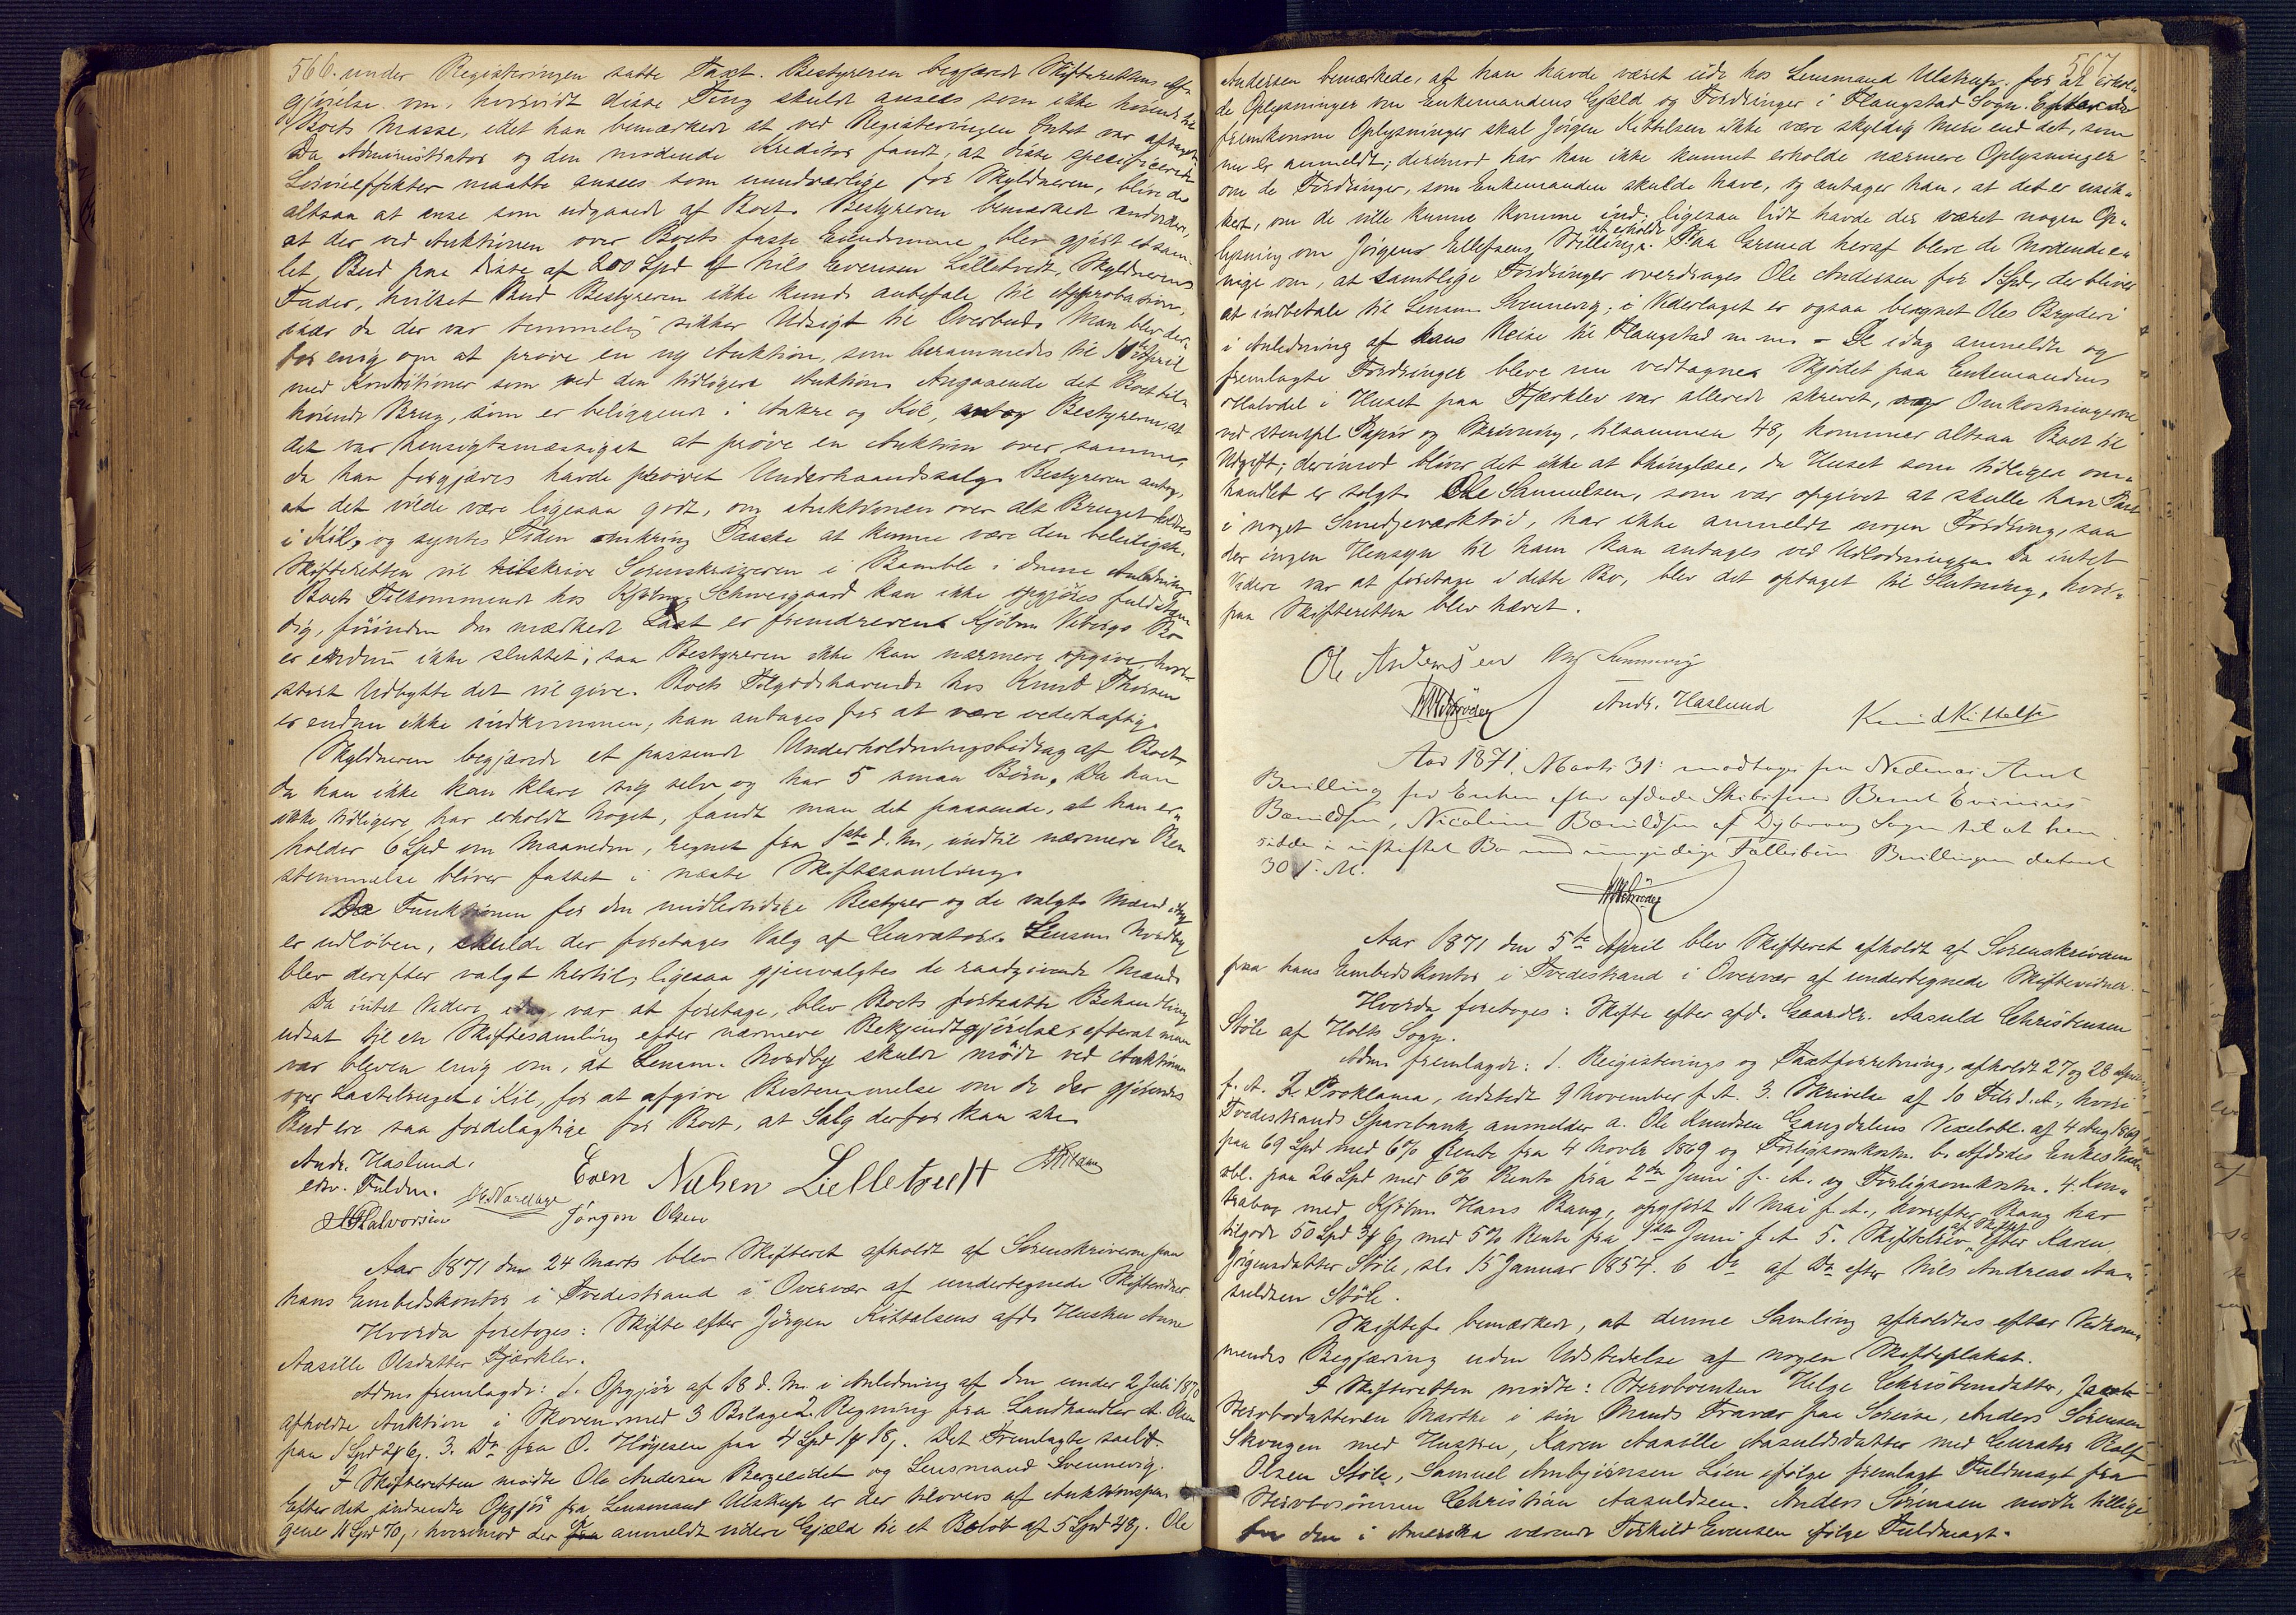 566. under Registeringen satte Taxt. Bestyreren begjærede Skifterettens Af-
gjørelse om, hvorvidt disse Ting skulde ansees som ikke hørende til
Boets Masse, idet han bemærkede at ved Registeringen Intet var aftaget.
Da Administrator og den mødende Kreditor fandt, at disse specificerede
Løsøreeffekter maatte ansees som uundværlige for Skyldneren, blive de
altsaa at anse som udgaaede af Boet. Bestyreren bemærkede endvidere,
at der ved Auktionen over Boets faste Eiendomme blev gjort et sam-
let Bud paa disse af 200 Spd af Nils Evensen Lilletvedt, Skyldnerens
Fader, hvilket Bud Bestyreren ikke kunde anbefale til Approbation,
især da der var temmelig sikker Udsigt til Overbud. Man blev der-
for enig om at prøve en ny Auktion, som berammedes til April
med Konditioner som ved den tidligere Auktion. Angaaende det Boet til-
hørende Brug, som er beliggende i Aakre og Kil, antog Bestyreren, at
det var hensigtsmæssigst at prøve en Auktion over samme,
da han forgjæves havde prøvet Underhaandssalg. Bestyreren antog,
at det vilde være ligesaa godt, om Auktionen over alt Bruget holdtes
i Kil, og syntes Tiden omkring Paaske at kunne være den beleiligste.
Skifteretten vil tilskrive Sorenskriveren i Bamble i denne Anledning.
Boets Tilkommende hos Kjøbm. Schweigaard kan ikke opgjøres fuldstæn-
dig, førinden den mærkede Last er fremdreven. Kjøbm Vebergs Bo
er endnu ikke sluttet, saa Bestyreren ikke kan nærmere opgive, hvor
stort Udbytte det vil give. Boets Tilgodehavende hos Knud Thorsen
er endnu ikke indkommen, han antages for at være vederhæftig.
Skyldneren begjærede et passende Underholdningsbidrag af Boet,
da han ikke kan klare sig selv og har 5 smaa Børn. Da han
ikke tidligere har erholdt Noget, fandt man det passende, at han er-
holder 6 Spd om Maaneden, regnet fra 1ste d. M., indtil nærmere Be-
stemmelse bliver fattet i næste Skiftesamling.
Da Funktionen for den midlertidige Bestyrer og de valgte Mænd
er udløben, skulde der foretages Valg af Curator. Lensm. Nordby
blev derefter valgt hertil, ligesaa gjenvalgtes de raadgivende Mænd.
Da intet Videre idag var at foretage, blev Boets fortsatte Behandling
udsat til en Skiftesamling efter nærmere Bekjendtgjørelse, efterat man
var bleven enig om, at Lensm. Nordby skulde møde ved Auktionen
over Lastebruget i Kil, for at afgive Bestemmelse om de der gjørendes
Bud ere saa fordelagtige for Boet, at Salg derfor kan ske.
Andr. Haslund.
edsv. Fuldm.
Even Nielsen Lilletvedt
Halvorsen
Jørgen Olsen
Aar 1871 den 24 Marts blev Skifteret afholdt af Sorenskriveren paa
hans Embedskontor i Tvedestrand i Overvær af undertegnede Skiftevidner.
Hvorda foretoges: Skifte efter Jørgen Kittelsens afd. Hustru Anne
Aasille Olsdatter Fjærklev.
Adm. fremlagde: 1. Opgjør af 18 d. M. i Anledning af den under 2 Juli 1870
afholdte Auktion i Skoven med 3 Bilage. 2. Regning fra Landhandler A. Olsen
paa 1 Spd 2 6. 3. Do fra O. Høyesen paa 4 Spd 1 18. Det Fremlagte saal.
I Skifteretten mødte Ole Andersen Bergelidet og Lensmand Svennevig.
Efter det indsendte Opgjør fra Lensmand Ulstrup er der tilovers af Auktionspen-
gene 11 Spd 70, hvorimod der er anmeldt videre Gjæld til et Beløb af 5 Spd 48. Ole
567
Andersen bemærkede, at han havde været ude hos Lensmand Ulstrup for at erhol-
de Oplysninger om Enkemandens Gjæld og Fordringer i Flaugstad Sogn. Efter de
fremkomne Oplysninger skal Jørgen Kittelsen ikke være skyldig mere end det, som
nu er anmeldt; derimod har han ikke kunnet erholde nærmere Oplysninger
om de Fordringer, som Enkemanden skulde have, og antager han, at det er usik-
kert, om de ville kunne komme ind; ligesaa lidt havde der været nogen Op-
at erholde
lysning om Jørgens Ellefsens Stilling. Paa Grund heraf bleve de Mødende e-
nige om, at samtlige Fordringer overdrages Ole Andersen for 1 Spd, der bliver
at indbetale til Lensm. Svennevig; i Vederlaget er ogsaa beregnet Oles Bryderi
i Anledning af hans Reise til Flaugstad m. m. - De idag anmeldte og
fremlagte Fordringer bleve nu vedtagne. Skjødet paa Enkemandens
Halvdel i Huset paa Fjærklev var allerede skrevet, og Omkostningerne
ved stempl. Papir og Skrivning, tilsammen 48, kommer altsaa Boet til
Udgift; derimod bliver det ikke at thinglæse, da Huset som tidligere om-
handlet er solgt. Ole Samuelsen, som var opgivet at skulle have Part
i noget Smedjeværktøi, har ikke anmeldt nogen Fordring, saa
der ingen Hensyn til ham kan antages ved Udlodningen. Da intet
Videre var at foretage i dette Bo, blev det optaget til Slutning, hvor-
paa Skifteretten blev hævet.
Ole Andersen Svennevig
Schrøder Andr. Haslund Knud Kittelsen
Aar 1871, Marts 31: modtages fra Nedenæs Amt
Bevilling for Enken efter afdøde Skibsfører Bernt
, Nicoline af Dybvaag Sogn til at hen-
sidde i uskiftet Bo med umyndige Fællesbørn Bevillingen dateret
30 d. M.
Schrøder
Aar 1871 den 5te April blev Skifteret afholdt af Sorenskriveren
paa hans Embedskontor i Tvedestrand i Overvær af undertegnede Skiftevidner.
Hvorda foretoges: Skifte efter afd. Gaardbr. Aasuld Christensen
Støle af Holts Sogn.
Adm. fremlagde: 1. Registerings og Taxtforretning, afholdt 27 og 28 April
f. A. 2. Proklama, udstedt 9 November f. A. 3. Skrivelse af 10 Febr d. A., hvori
Tvedestrands Sparebank anmelder a. Ole Knudsen Gangdalens Vexelobl. af 4 Aug 1869
paa 69 Spd med 6% Rente fra 4 Novbr 1869 og Forligsomkostn. b. Afdødes Enkes Vexel-
obl. paa 26 Spd med 6% Rente fra 2den Juni f. A. og Forligsomkostn. 4. Kon-
trabog med Kjøbm Hans Bang, opgjort 11 Mai f. A., hvorefter Bang har
tilgode 50 Spd 3 6 med 5% Rente fra 1ste Juni f. A. 5. Skiftebrev af Skiftet efter Karen
Jørgensdatter Støle, sl. 15 Januar 1854. 6 Do af Do efter Nils Andreas Aa-
suldsen Støle.
Skiftef. bemærkede, at denne Samling afholdtes efter Vedkom-
mendes Begjæring uden Udstedelse af nogen Skifteplakat.
I Skifteretten mødte: Stervboenken Helge Christensdatter,
Stervbodatteren Marthe i sin Mands Fravær paa Søreise, Anders Sørensen
Skougen med Hustru, Karen Aasille Aasuldsdatter med Curator Rolf
Olsen Støle, Samuel Anbjørnsen Lien ifølge fremlagt Fuldmagt fra
Stervbosønnen Christian Aasuldsen. Anders Sørensen mødte tillige
for den i Amerika værende Torkild Evensen ifølge Fuldmagt.